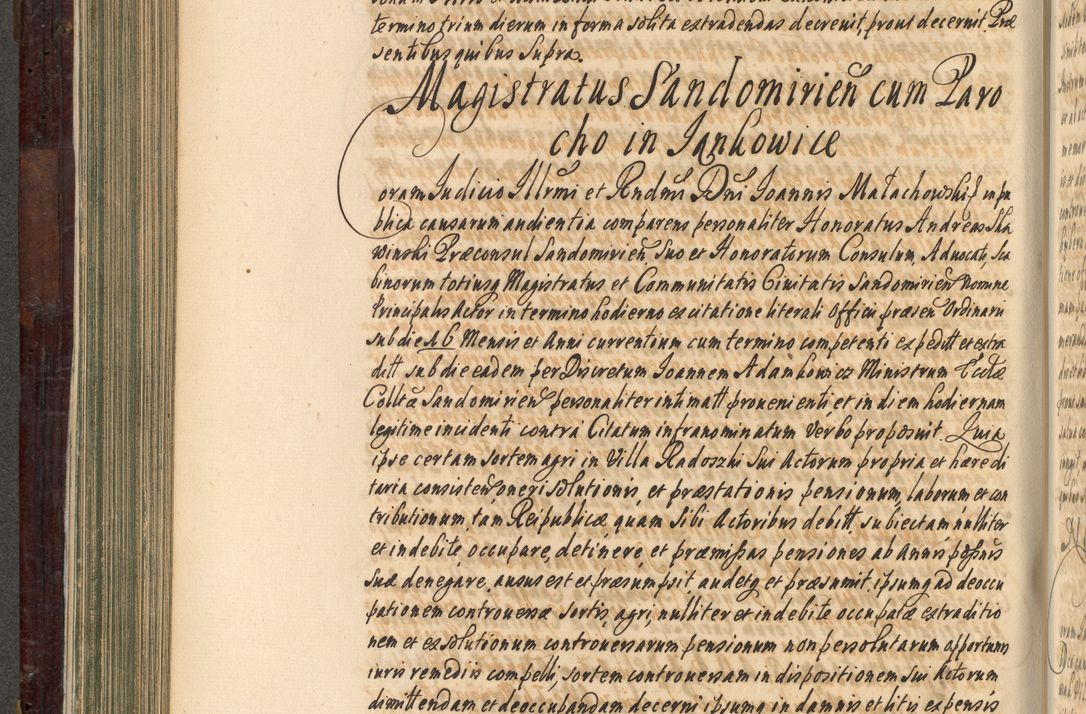 termino trium dierum in forma solita extradendas decrevit, prout decernit. Præ
sentibus quibus supra.
Magistratus Sandomirien̄ cum Paro
cho in Jankowice
Coram Judicio Illrm̄i et Rndm̄i Dn̄i Joannis Małachowski in pu
blica causarum audientia comparens personaliter Honoratus Andreas Ska
winski Præconsul Sandomirien̄, suo et Honoratorum Consulum, Advocati, Sca
binorum totiusq Magistratus et Communitatis Civitatis Sandomirien̄ nomine
Principalis Actor in termino hodierno ex citatione literali Officii præsen̄ Ordinarii
sub die 16 Mensis et Anni currentium cum termino competenti expeditt et extra
ditt sub die eadem per Discretum Joannem Adamkowicz Ministrum Ecctæ
Colltæ Sandomirien̄ personaliter intimatt provenienti et in diem hodiernam
legitime incidenti contra Citatum infranominatum verbo proposuit. Quia
ipse certam sortem agri in Villa Radoszki sui Actorum propria et hæredi
taria consisten̄ oneri solutionis, et præstationis pensionum, laborum et con
tributionum tam Reipublicæ quam sibi Actoribus debitt, subiectam nulliter
et indebite occupare, detinere, et præmissas pensiones ab annis possnis
suæ denegare, ausus est et præsumpsit audetq et præsumit, ipsum ad deoccu
pationem controversæ sortis, agri, nulliter et indebite occupatæ extraditio
nem et exsolutionum controversarum pensionum non persolutarum opportunis
iuris remediis compelli, sortem controversam in dispositionem sui Actorum
dimittendam et deoccupandam decerni ipsum in damnis et litis expensis